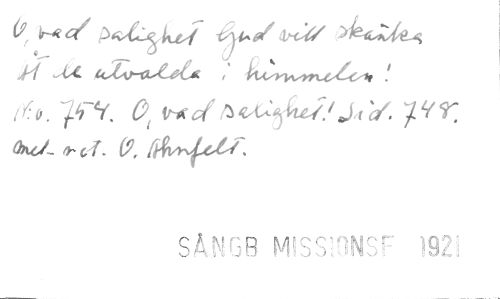 O, vad salighet Gud vill skänka
åt de utvalda i himmelen!
N:o. 754. O, vad salighet! Sid. 748.
met. not. O. Ahnfelt.
SÅNGB MISSIONSF 1921